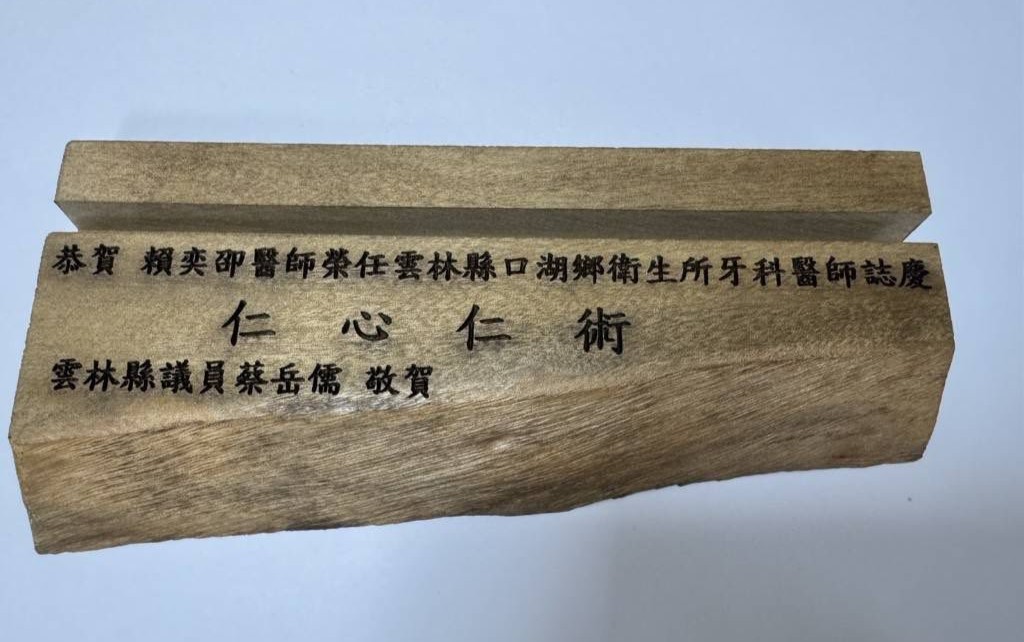 恭賀 賴奕卲醫師榮任雲林縣口湖鄉衛生所牙科醫師誌慶
仁心仁術
雲林縣議員蔡岳儒 敬賀